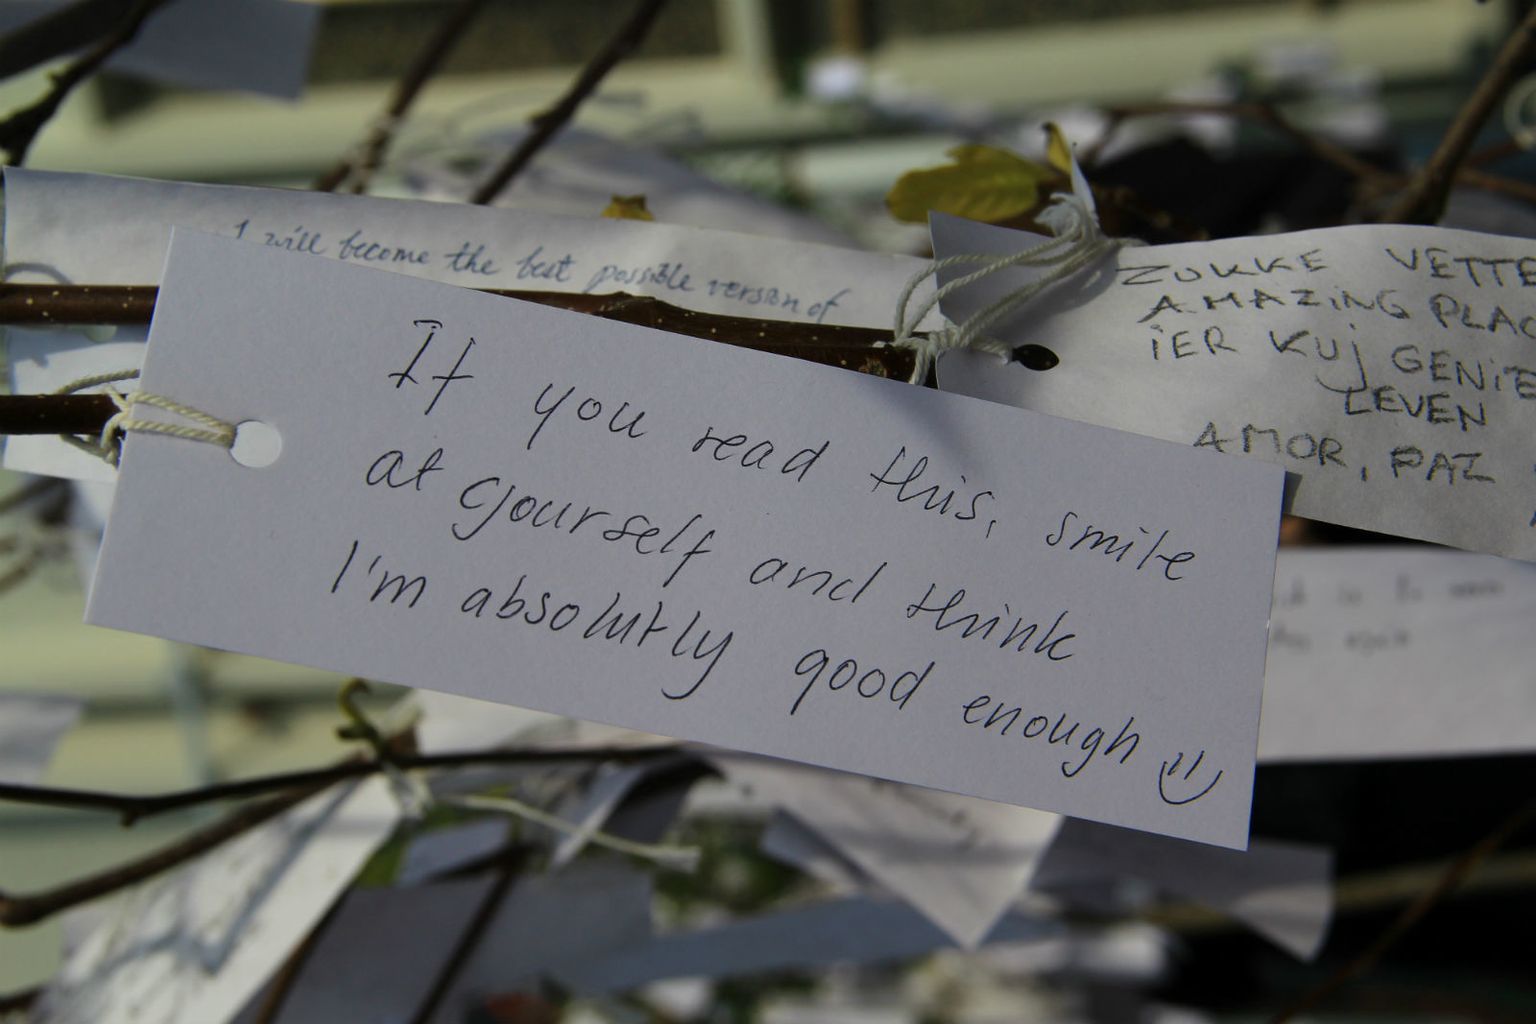 I will become the best possible version of
If you read this, smile
at yourself and think
I'm absolutly good enough
ZUKKE VETTE
AMAZING PLAC
iER KUJ GENiE
LEVEN
AMOR, PAZ